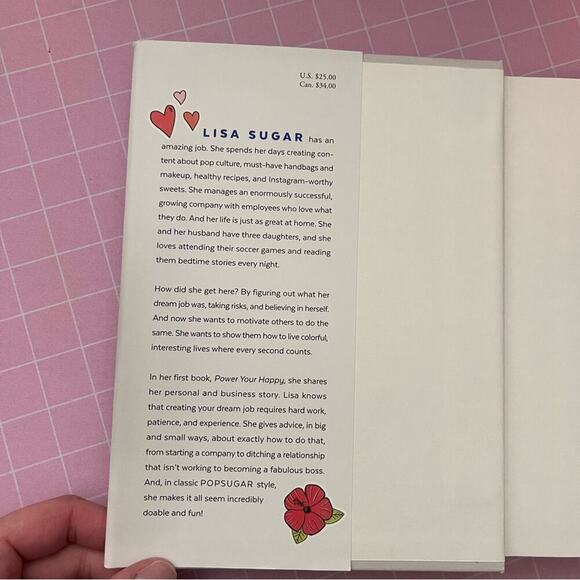 U.S. $25.00
Can. $34.00
LISA SUGAR has an
amazing job. She spends her days creating con-
tent about pop culture, must-have handbags and
makeup, healthy recipes, and Instagram-worthy
sweets. She manages an enormously successful,
growing company with employees who love what
they do. And her life is just as great at home. She
and her husband have three daughters, and she
loves attending their soccer games and reading
them bedtime stories every night.
How did she get here? By figuring out what her
dream job was, taking risks, and believing in herself.
And now she wants to motivate others to do the
same. She wants to show them how to live colorful,
interesting lives where every second counts.
In her first book, Power Your Happy, she shares
her personal and business story. Lisa knows
that creating your dream job requires hard work,
patience, and experience. She gives advice, in big
and small ways, about exactly how to do that,
from starting a company to ditching a relationship
that isn't working to becoming a fabulous boss.
And, in classic POPSUGAR style,
she makes it all seem incredibly
doable and fun!